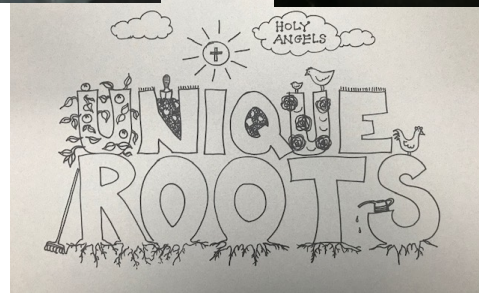 HOLY
ANGELS
UNIQUE
ROOTS